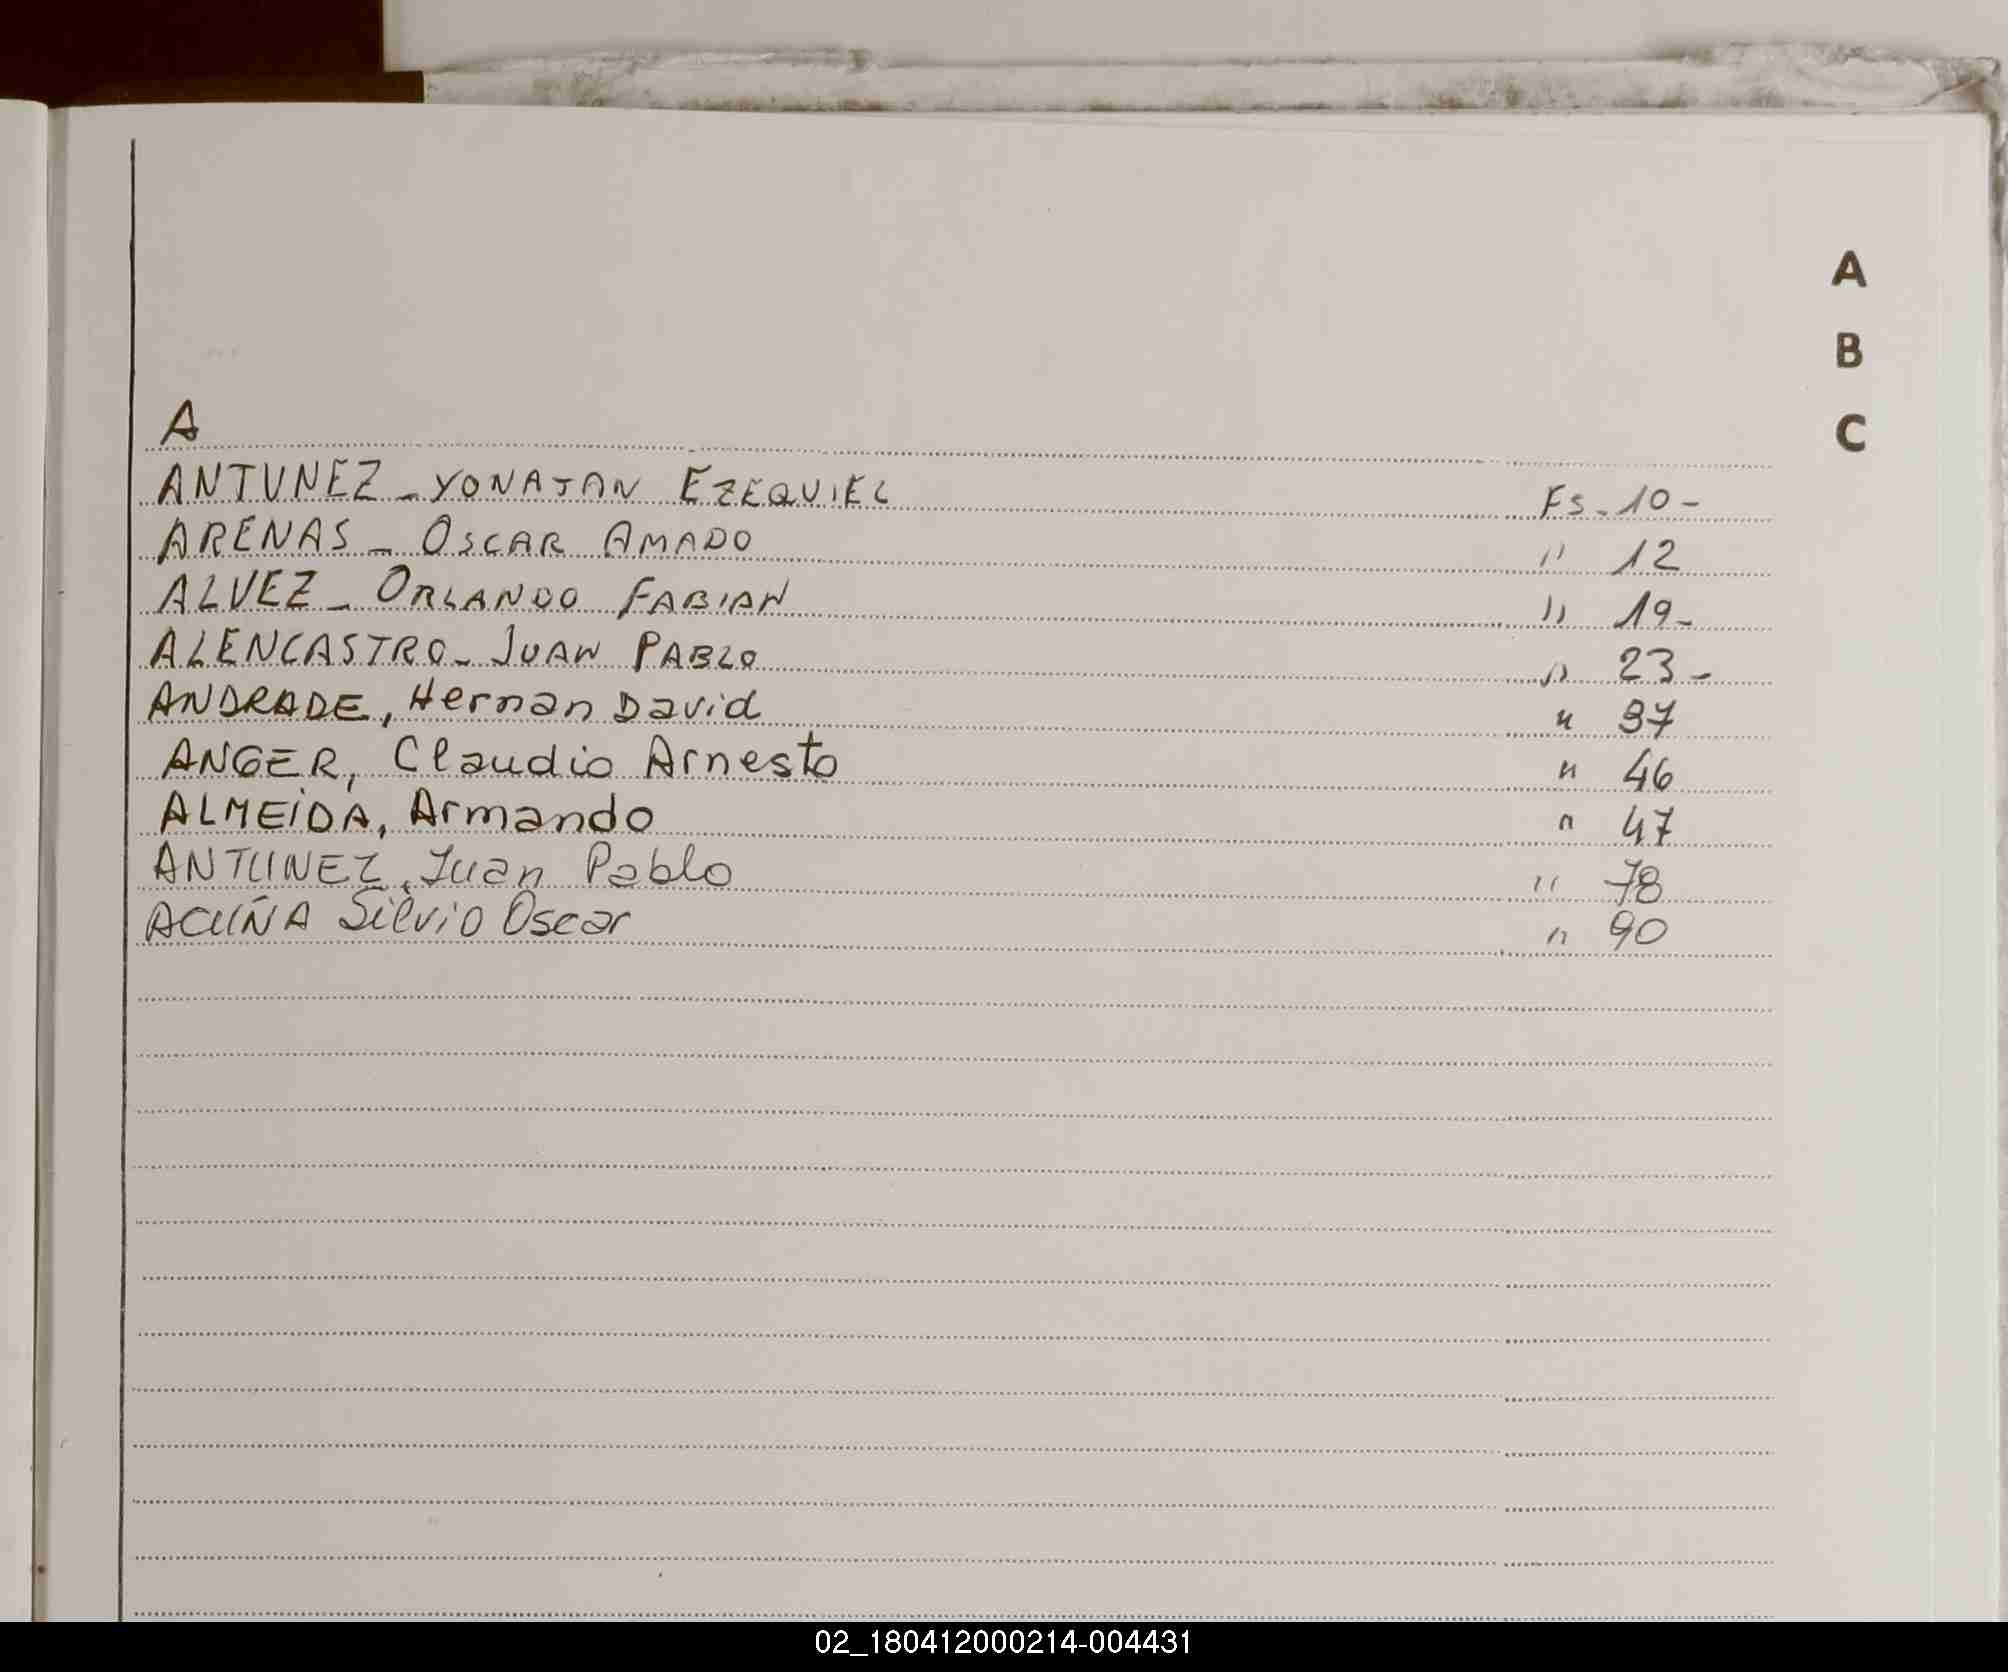 A
B
C
A
ANTUNEZ - YONATAN EZEQUIEL Fs. 10 -
ARENAS - OSCAR AMADO " 12
ALVEZ - ORLANDO FABIAN " 19 -
ALENCASTRO - JUAN PABLO " 23 -
ANDRADE, Hernan David " 37
ANGER, Claudio Arnesto " 46
ALMEIDA, Armando " 47
ANTUNEZ, Juan Pablo " 78
ACUÑA Silvio Oscar " 90
02_180412000214-004431